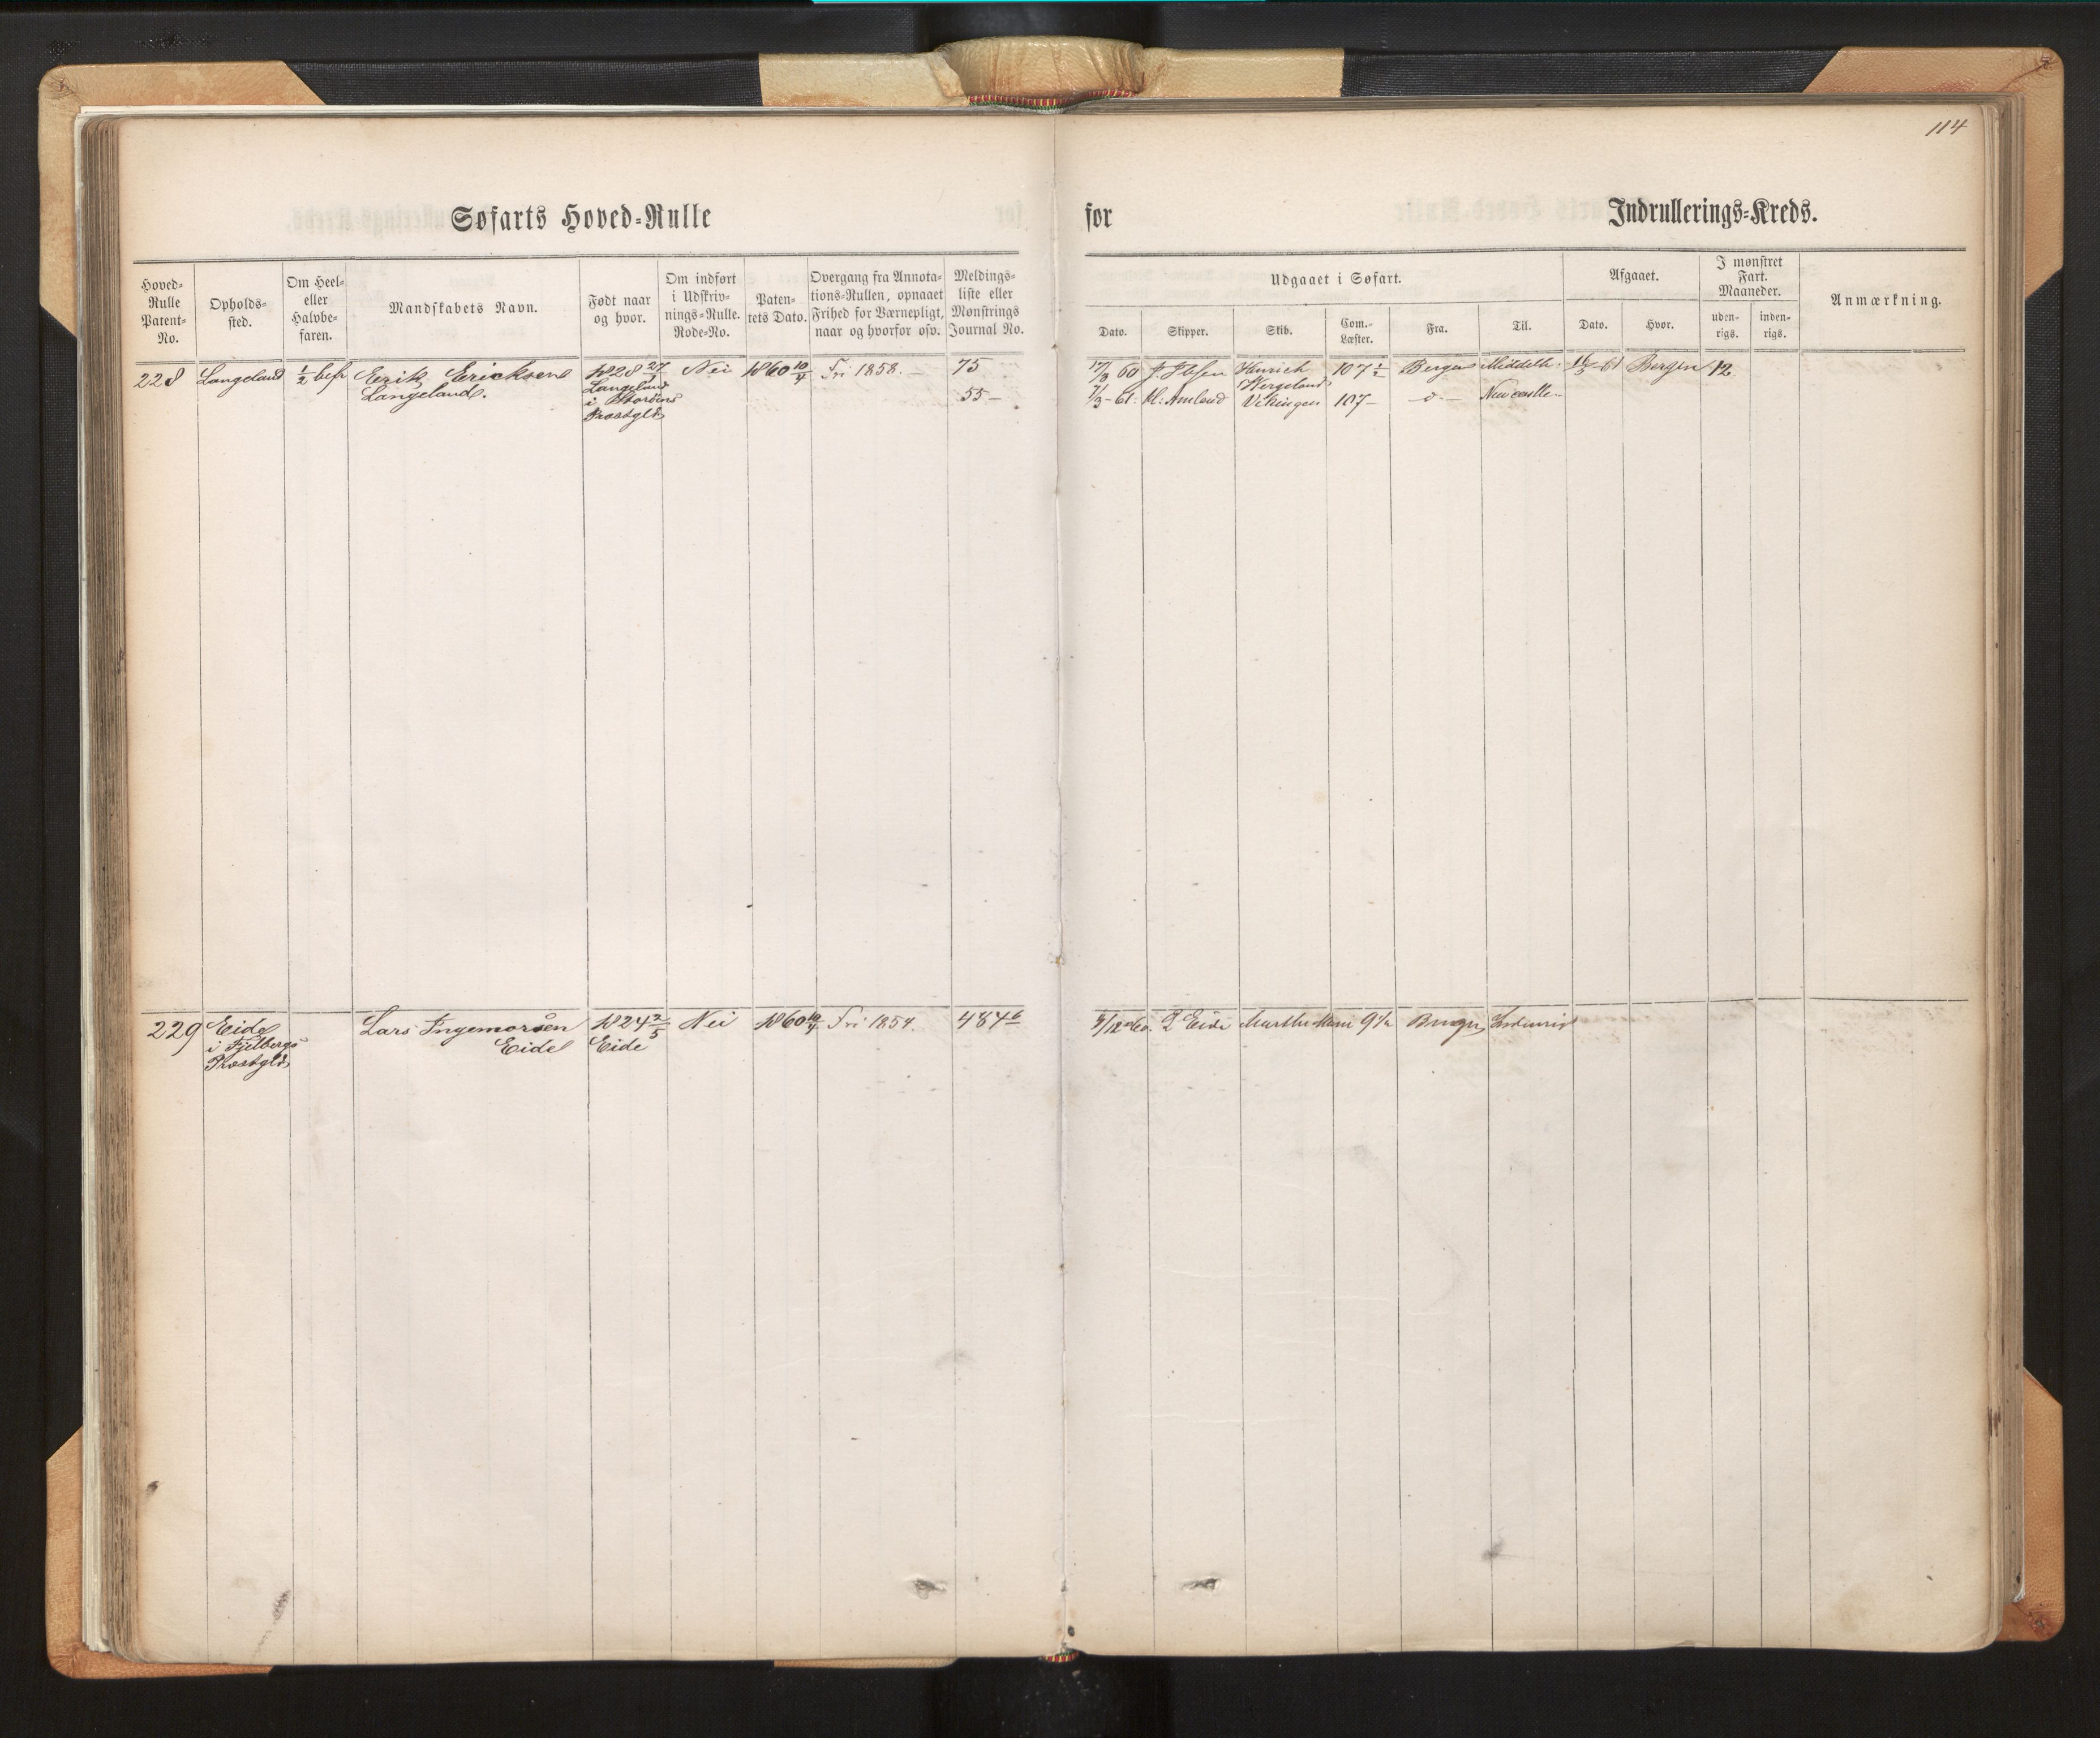 114
Søfarts Hoved-Rulle
for
Indrullerings-Kreds.
Hoved-
Rulle
Patent-
No.
Opholds-
sted.
Om Heel-
eller
Halvbe-
faren.
Mandskabets Navn.
Født naar
og hvor.
Om indført
i Udskriv-
nings-Rulle.
Rode-No.
Paten-
tets Dato.
Overgang fra Annota-
tions-Rullen, opnaaet
Frihed for Værnepligt,
naar og hvorfor osv.
Meldings-
liste eller
Mønstrings
Journal No.
Udgaaet i Søfart.
Dato.
Skipper.
Skib.
Com.-
Læster.
Fra.
Til.
Afgaaet.
Dato.
Hvor.
I mønstret
Fart.
Maaneder.
uden-
rigs.
inden-
rigs.
Anmærkning.
228
Langeland
1/2 bef
Eerik Ericksen
Langeland.
1828 27/7
Langeland
i Storøens
Præstgld
Nei
1860 10/4
Fri 1858. –
75
55 –
17/3 60
J. Ibsen
Hinrich
Wergeland
107 1/2
Bergen
Middelh.
16/3 61
Bergen
12
7/3 – 61.
Amland
Vikingen
107 –
– d – –
Newcastle
229
Eide
i Fjelbergs
Præstgld
Lars Ingemorsen
Eide
1824 2/5
Eide
Nei
1860 10/4
Fri 1854.
484
Eide
Martha
Bergen